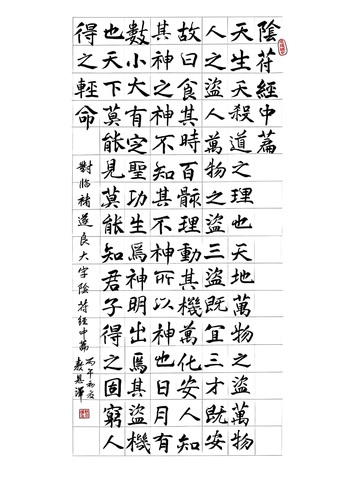 陰苻經中篇
天生天殺道之理也天地萬物之盜萬物
人之盜人萬物之盜三盜既宜三才既安
故曰食其時百骸理動其機萬化安人知
其神之神不知其不神所以神也日月有
數小大有定聖功生焉神明出焉其盜機
也天下莫能見莫能知君子得之固窮人
得之輕命
對臨褚遂良大字陰苻經中篇
丙午初